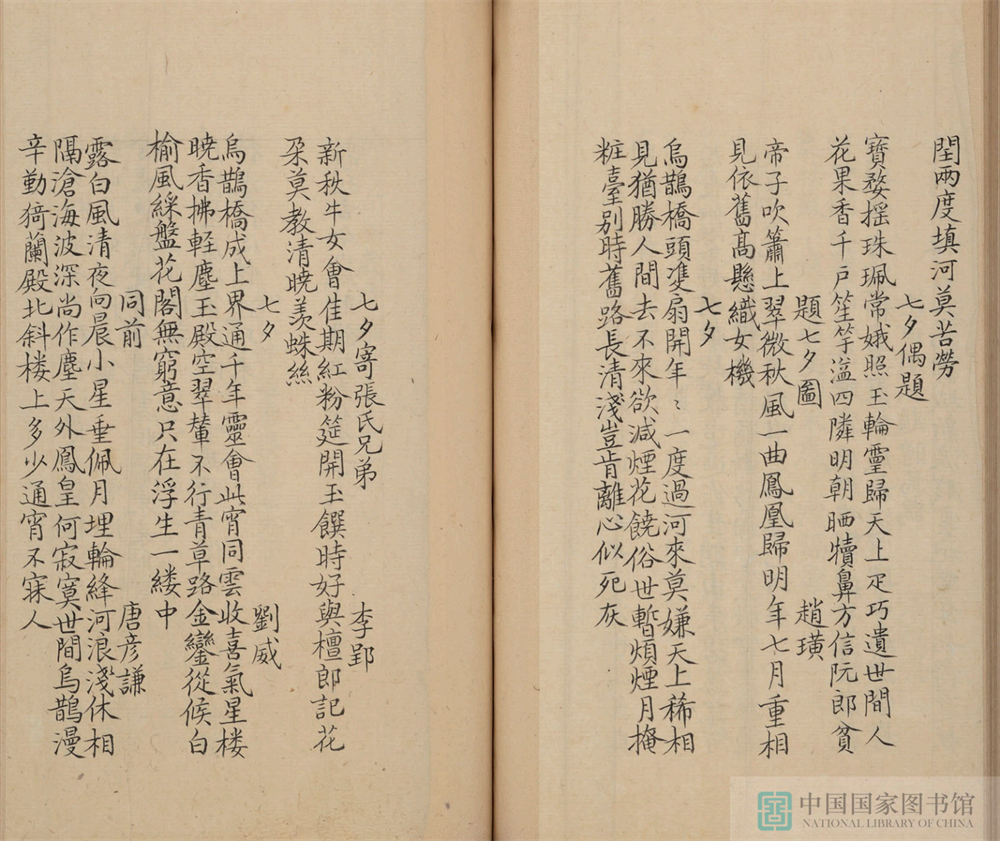 閏兩度填河莫苦勞
七夕偶題
寳婺摇珠珮常娥照玉輪靈歸天上疋巧遺世間人
花果香千戸笙竽溢四隣明朝晒犢鼻方信阮郎貧
題七夕圖 趙璜
帝子吹簫上翠微秋風一曲鳳凰歸明年七月重相
見依舊髙懸織女機
七夕
烏鵲橋頭雙扇開年〻一度過河來莫嫌天上稀相
見猶勝人間去不來欲減煙花饒俗世暫煩煙月掩
粧臺别時舊路長清淺豈肯離心似死灰
七夕寄張氏兄弟 李郢
新秋牛女會佳期紅粉筵開玉饌時好與檀郎記花
朶莫教清曉羡蛛絲
七夕 劉威
烏鵲橋成上界通千年靈會此宵同雲收喜氣星楼
曉香拂軽塵玉殿空翠輦不行青草路金鑾從候白
榆風綵盤花閣無窮意只在浮生一縷中
同前 唐彦謙
露白風清夜向晨小星垂佩月埋輪絳河浪淺休相
隔滄海波深尚作塵天外鳳皇何寂寞世間烏鵲漫
辛勤猗蘭殿北斜楼上多少通宵不寐人
中国国家图书馆
NATIONAL LIBRARY OF CHINA